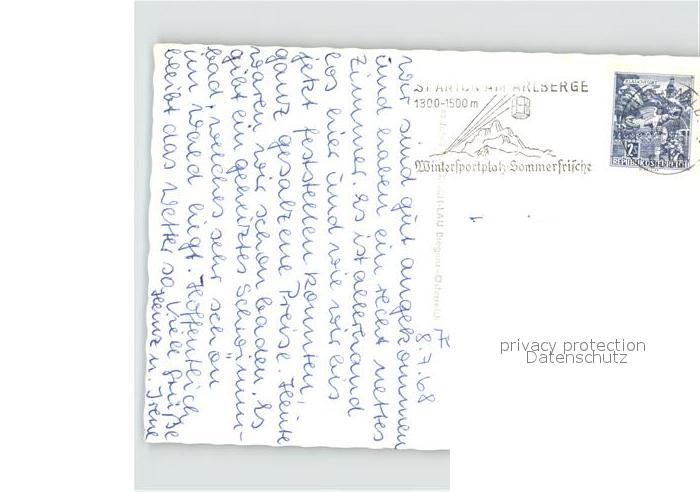 8.7.68
Wir sind gut angekommen
und haben ein recht nettes
Zimmer. Es ist allerhand
los hier und wie wir bis
jetzt feststellen konnten,
ganz gesalzene Preise. Heute
waren wir schon baden. Es
gibt ein geheiztes Schwimm-
bad, welches sehr schön
im Wald liegt. Hoffentlich
bleibt das Wetter so. Viele Grüße
Heinz u. Irene
ST. ANTON AM ARLBERG
1300-1500 m
Wintersportplatz-Sommerfrische
KLAGENFURT
2S
REPUBLIK ÖSTERREICH
Bregenz - Österreich
privacy protection
Datenschutz